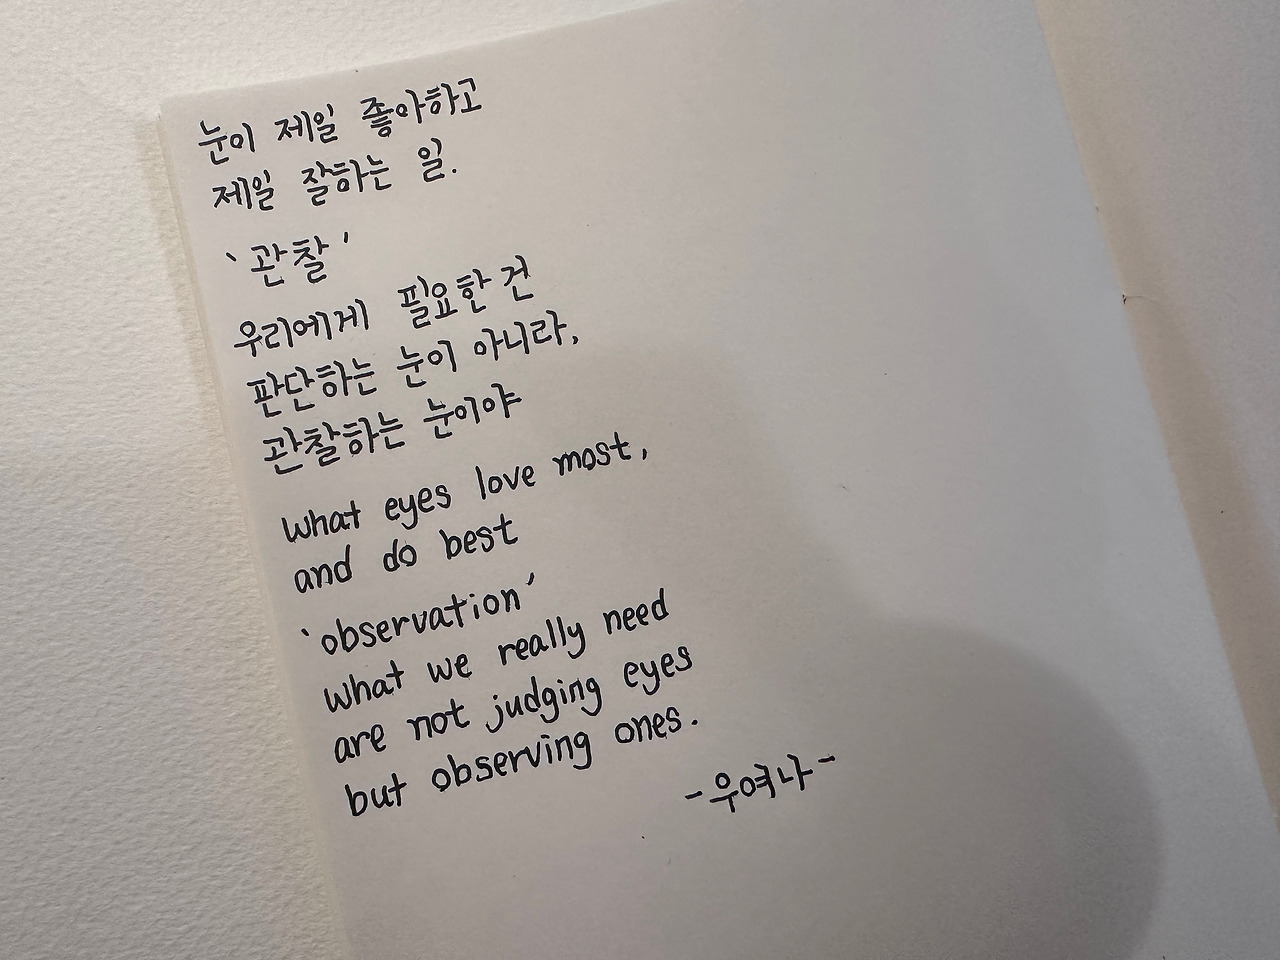 눈이 제일 좋아하고
제일 잘하는 일.
'관찰'
우리에게 필요한 건
판단하는 눈이 아니라,
관찰하는 눈이야
what eyes love most,
and do best
'observation'
what we really need
are not judging eyes
but observing ones.
-우여나-